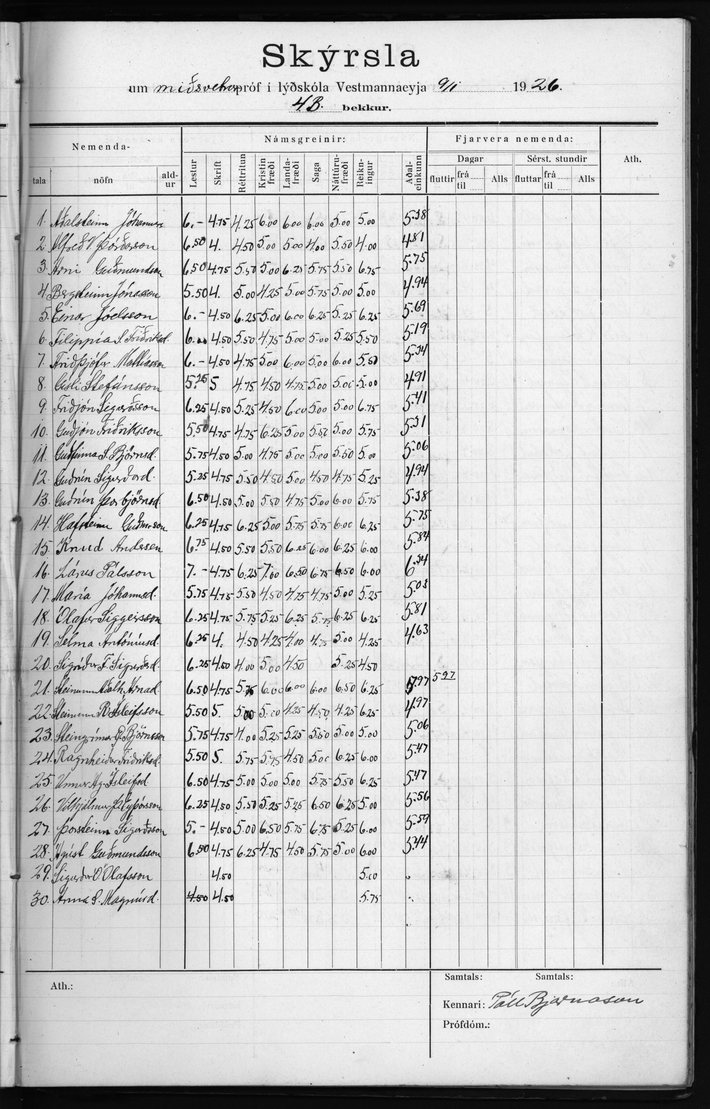 Skýrsla
um miðsvetrarpróf í lýðskóla Vestmannaeyja 9/1 1926.
4B. bekkur.
Nemenda- Námsgreinir: Fjarvera nemenda:
tala nöfn ald-ur Lestur Skrift Réttritun Kristin fræði Landa-fræði Saga Náttúru-fræði Reikn-ingur Aðal-einkunn Dagar Sérst. stundir Ath.
fluttir frá til Alls fluttar frá til Alls
1. Aðalsteinn Jóhannsson 6.- 4.75 4.25 6.00 6.00 6.00 5.00 5.00 5.38
2. Alfreð Þórðarson 6.50 4. 4.50 5.00 5.00 4.00 5.50 4.00 4.81
3. Árni Guðmundsson 6.50 4.75 5.50 5.50 6.25 5.75 5.50 6.75 5.75
4. Bergsteinn Jónasson 5.50 4. 5.00 4.25 5.00 5.75 5.00 5.00 4.94
5. Einar Jóelsson 6.- 4.50 6.25 5.00 6.00 6.25 5.25 6.25 5.69
6. Filippía S. Friðriksd. 4.50 5.50 4.75 5.00 5.00 5.25 5.50 5.19
7. Friðþjófur Mathiasson 6.- 4.50 4.75 5.00 6.00 5.00 6.00 5.50 5.34
8. Gísli Stefánsson 5.25 5 4.75 4.50 4.75 5.00 5.00 5.00 4.91
9. Friðjón Sigurðsson 6.25 4.50 5.25 4.50 6.00 5.00 5.00 6.75 5.41
10. Guðjón Friðriksson 5.50 4.75 4.75 6.25 5.00 5.50 5.00 5.75 5.31
11. Guðfinna S. Björnsd. 5.75 4.50 5.00 4.75 5.00 5.00 5.50 5.00 5.06
12. Guðrún Sigurðard. 5.25 4.75 5.50 4.50 5.00 4.50 4.75 5.25 4.94
13. Guðrún Þorbjörnsd. 6.50 4.50 5.00 5.50 4.75 5.00 6.00 5.75 5.38
14. Hafsteinn 6.25 4.75 6.25 5.00 5.75 5.75 6.00 6.25 5.75
15. Knud Andersen 6.75 4.50 5.50 5.50 6.25 6.00 6.25 6.00 5.84
16. Lárus Pálsson 7.- 4.75 6.25 7.00 6.50 6.75 6.50 6.00 6.34
17. María Jóhannsd. 5.75 4.75 5.50 4.50 4.75 4.75 5.00 5.25 5.03
18. Ólafur Siggeirsson 6.25 4.75 5.75 5.25 6.25 5.75 6.25 6.25 5.81
19. Selma Antóníusd. 6.25 4. 4.50 4.25 4.00 4.75 5.00 4.25 4.63
20. Sigríður F. Sigurðsd. 6.25 4.50 4.00 5.00 4.50 5.25 4.50
21. Steinunn 6.50 4.75 5.75 6.00 6.00 6.00 6.50 6.25 5.97 527
22. Steinunn R. Ísleifsson 5.50 5. 5.00 5.00 4.25 4.50 4.25 6.25 4.97
23. Steingrímur G. Björnsson 5.75 4.75 4.00 5.25 5.25 5.50 5.00 5.00 5.06
24. Ragnheiður Friðriksd. 5.50 5. 5.75 5.75 4.50 5.00 6.25 6.00 5.47
25. Unnur Ísleifsd. 6.50 4.75 5.00 5.00 5.00 5.75 5.50 6.25 5.47
26. Vilhjálmur 6.25 4.50 5.50 5.25 5.25 6.50 6.25 5.00 5.56
27. Þorsteinn Sigurðsson 5.- 4.50 5.00 6.50 5.75 6.75 5.25 6.00 5.59
28. Ágúst Guðmundsson 6.50 4.75 6.25 4.75 4.50 5.75 5.00 6.00 5.44
29. Sigurður Ó. Ólafsson 4.50 5.00
30. Anna S. Magnúsd. 4.50 4.50 5.75
Ath.: Samtals: Samtals:
Kennari: Páll Bjarnason
Prófdóm.: